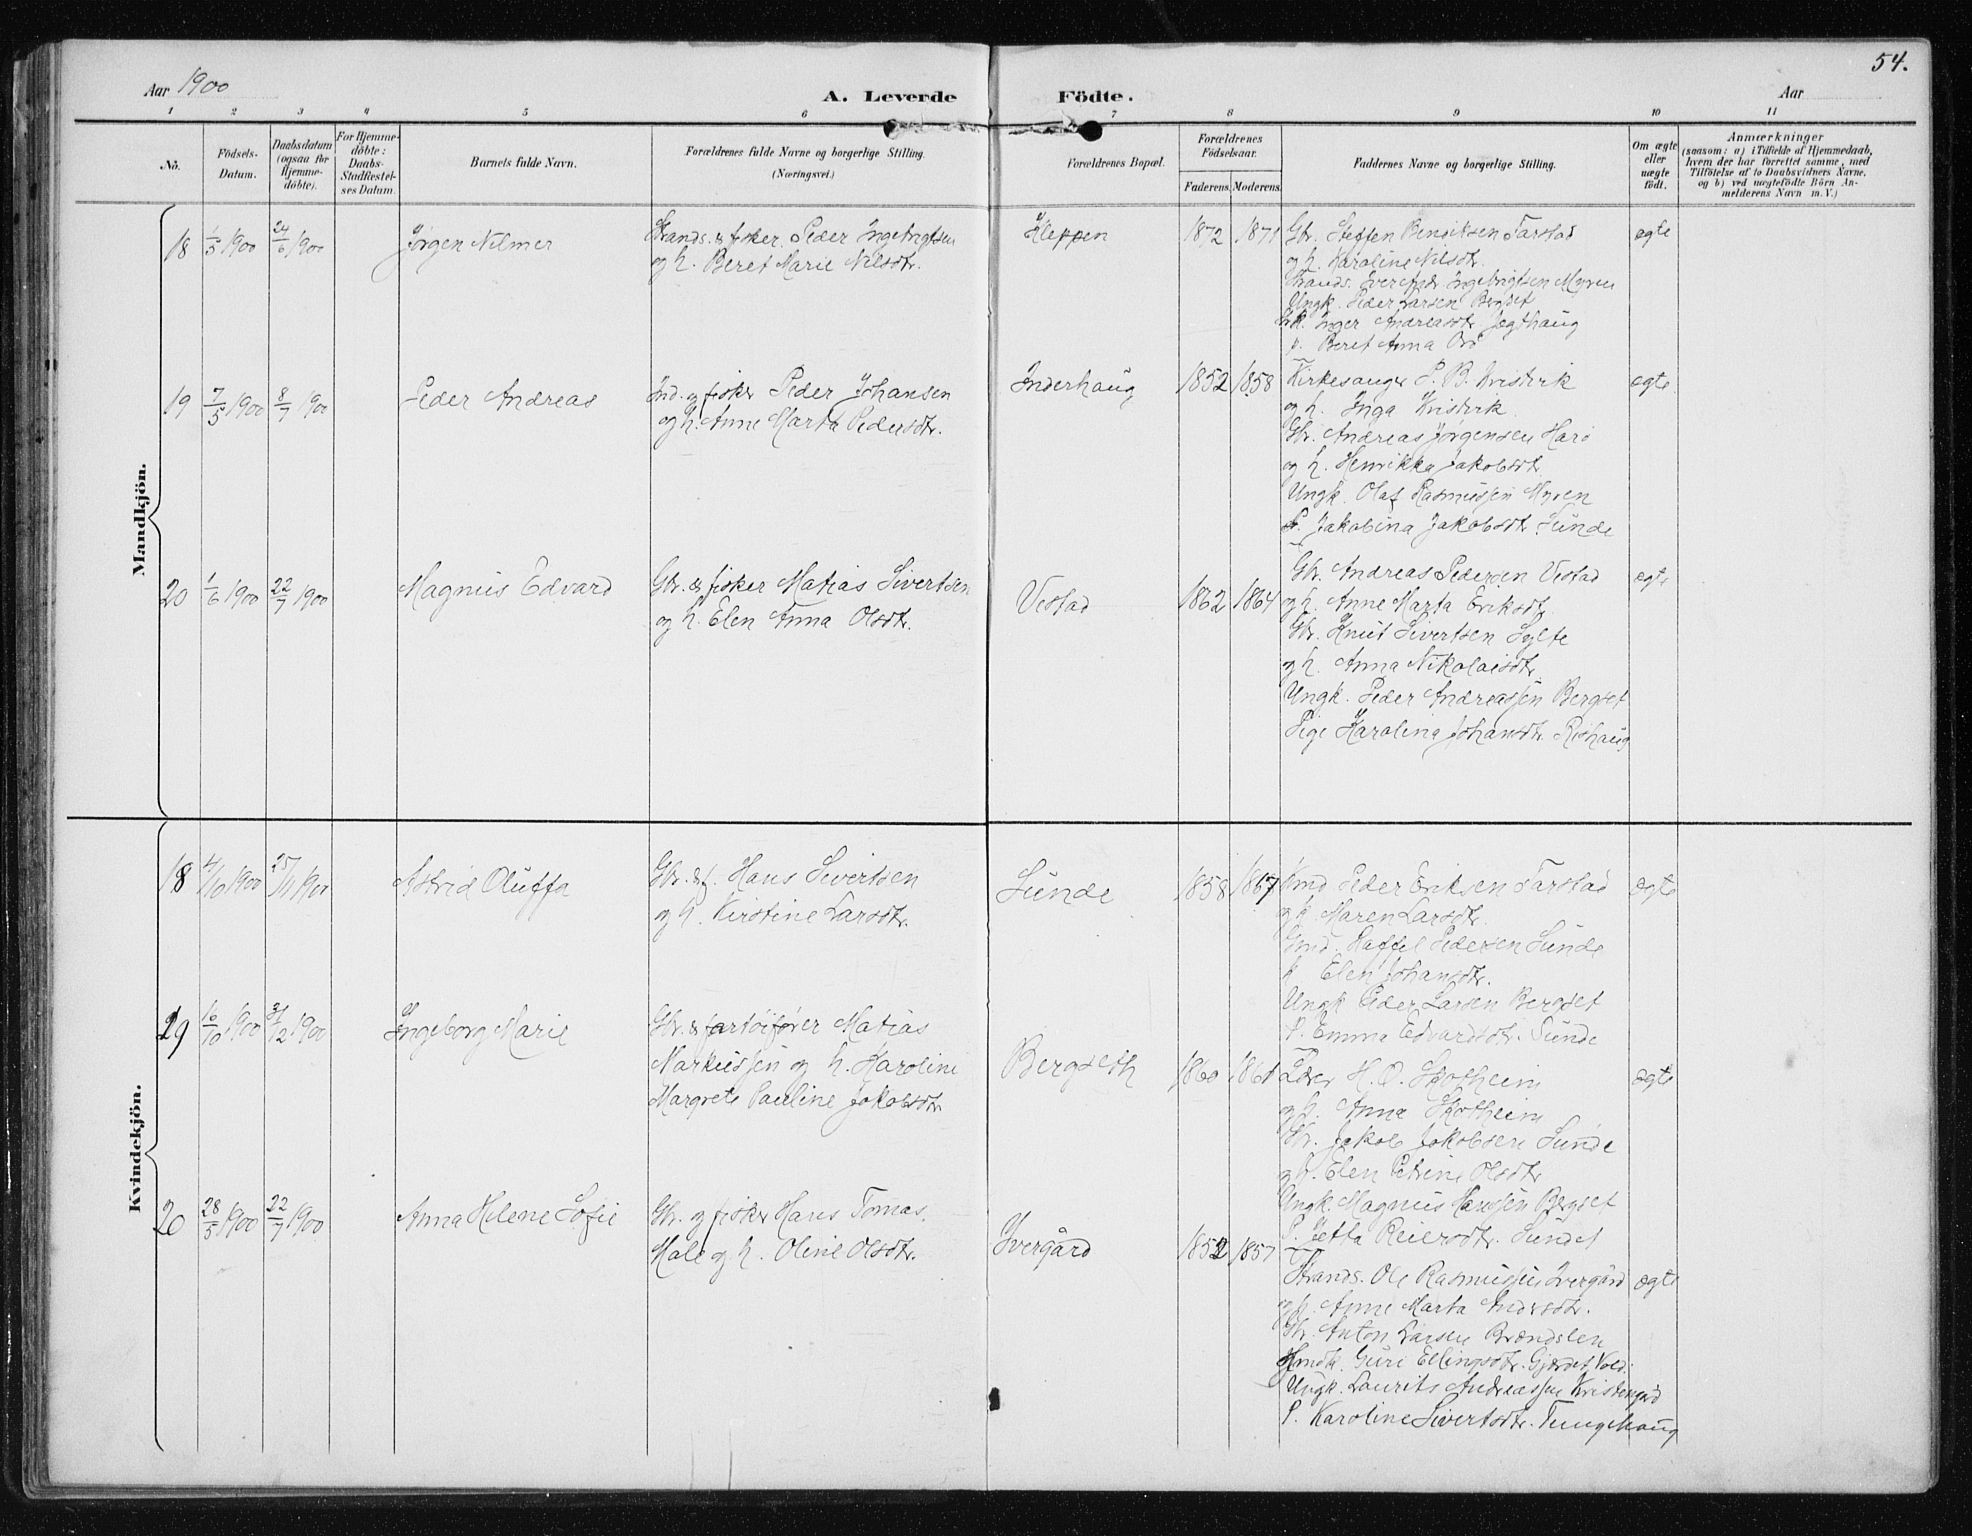 54.
Aar 1900
A. Leverde Födte.
Aar
1 2 3 4 5 6 7 8 9 10 11
No.
Födsels-Datum.
Daabsdatum (ogsaa for Hjemme-döbte).
For Hjemme-döbte: Daabs-Stadfæstel-ses Datum.
Barnets fulde Navn.
Forældrenes fulde Navne og borgerlige Stilling.
(Næringsvei.)
Forældrenes Bopæl.
Forældrenes Födselsaar.
Faderens. Moderens.
Faddernes Navne og borgerlige Stilling.
Om ægte eller uægte födt.
Anmærkninger
(saasom: a) i Tilfælde af Hjemmedaab, hvem der har forrettet samme, med Tilföielse af to Daabsvidners Navne, og b) ved uægtefödte Börn An-melderens Navn m. V.)
Mandkjön.
18 1/5 1900 24/6 1900 Jørgen Nilmer
Strands. & fisker Peder Ingebrigtsen
og h. Beret Marie Nilsdtr.
Kleppen 1872 1871
Gbr. Steffen Bendiksen Farstad
og h. Karoline Nilsdtr.
Strands. Iver Andr. Ingebrigtsen Myren
Ungk. Peder Larsen Bergset
Inger Andreasdtr. Jægthaug
p. Beret Anna Orø
ægte
19 7/5 1900 8/7 1900 Peder Andreas
Ind. og fisker Peder Johansen
og h. Anne Marta Pedersdtr.
Inderhaug 1852 1858
Kirkesanger P. B. Kristvik
og h. Inga Kristvik.
Gbr. Andreas Jørgensen Harø
og h. Henrikka Jakobsdtr.
Ungk. Olaf Rasmussen Myren
P. Jakobina Jakobsdtr. Sunde
ægte.
20 1/6 1900 22/7 1900 Magnus Edvard
Gbr. & fisker Matias Sivertsen
og h. Elen Anna Olsdtr.
Vestad 1862 1864
Gbr. Andreas Pedersen Vestad
og h. Anne Marta Eriksdtr.
Gbr. Knut Sivertsen Sylte
og h. Anna Nikolaisdtr.
Ungk. Peder Andreassen Bergset
Pige Karolina Johansdtr. Rishaug
ægte
Kvindekjön.
18 4/10 1900 25/11 1900 Astrid Oluffa
Gbr. & f. Hans Sivertsen
og h. Kirstine Larsdtr.
Sunde 1858 1867
Kmd. Peder Eriksen Farstad
og k. Maren Larsdtr.
Gmd. Raffel Pedersen Sunde
k Elen Johansdtr.
Ungk Peder Larsen Bergset
P. Emma Edvardsdtr. Sunde
ægte
19 16/10 1900 31/12 1900 Ingeborg Marie
Gbr. & fartøifører Matias
Markussen og h. Karoline
Margrete Pauline Jakobsdtr.
Bergseth 1860 1861
Lærer H. O. Skotheim
og h. Anna Skotheim
Gbr. Jakob Jakobsen Sunde
og h. Elen Petrine Olsdtr.
Ungk. Magnus Hanssen Bergset
P. Jetta Reiersdtr. Sundet
ægte
20 28/5 1900 22/7 1900 Anna Helene Sofie
Gbr. og fisker Hans Tomas.
Male og h. Oline Olsdtr.
Ivergård 1852 1857
Strands. Ole Rasmussen Ivergård
og h. Anne Marta Andersdtr.
Gbr. Anton Larsen Brændslen
Guri Ellingsdtr. Gjerdet, Vold.
Ungk. Laurits Andreassen Kristengård
P. Karoline Sivertsdtr. Tungehaug
ægte